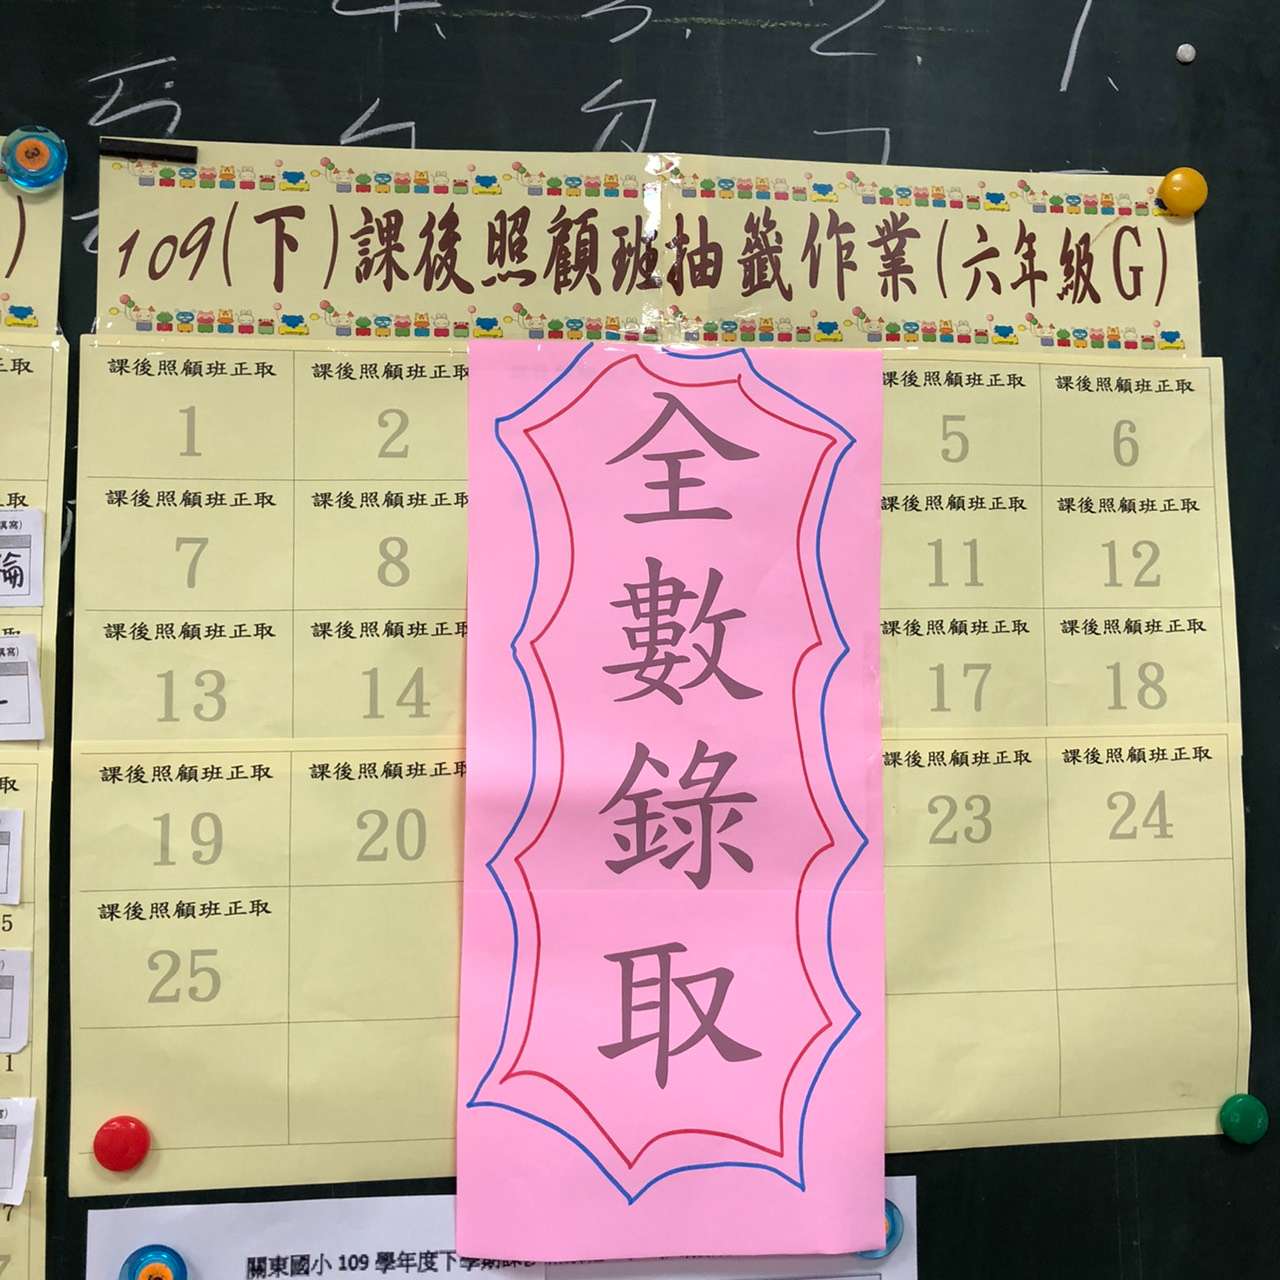 109(下)課後照顧班抽籤作業(六年級G)
課後照顧班正取 課後照顧班正取 課後照顧班正取 課後照顧班正取
1 2 5 6
課後照顧班正取 課後照顧班正取 課後照顧班正取 課後照顧班正取
7 8 11 12
課後照顧班正取 課後照顧班正取 課後照顧班正取 課後照顧班正取
13 14 17 18
課後照顧班正取 課後照顧班正取 課後照顧班正取 課後照顧班正取
19 20 23 24
課後照顧班正取
25
全
數
錄
取
關東國小 109 學年度下學期課